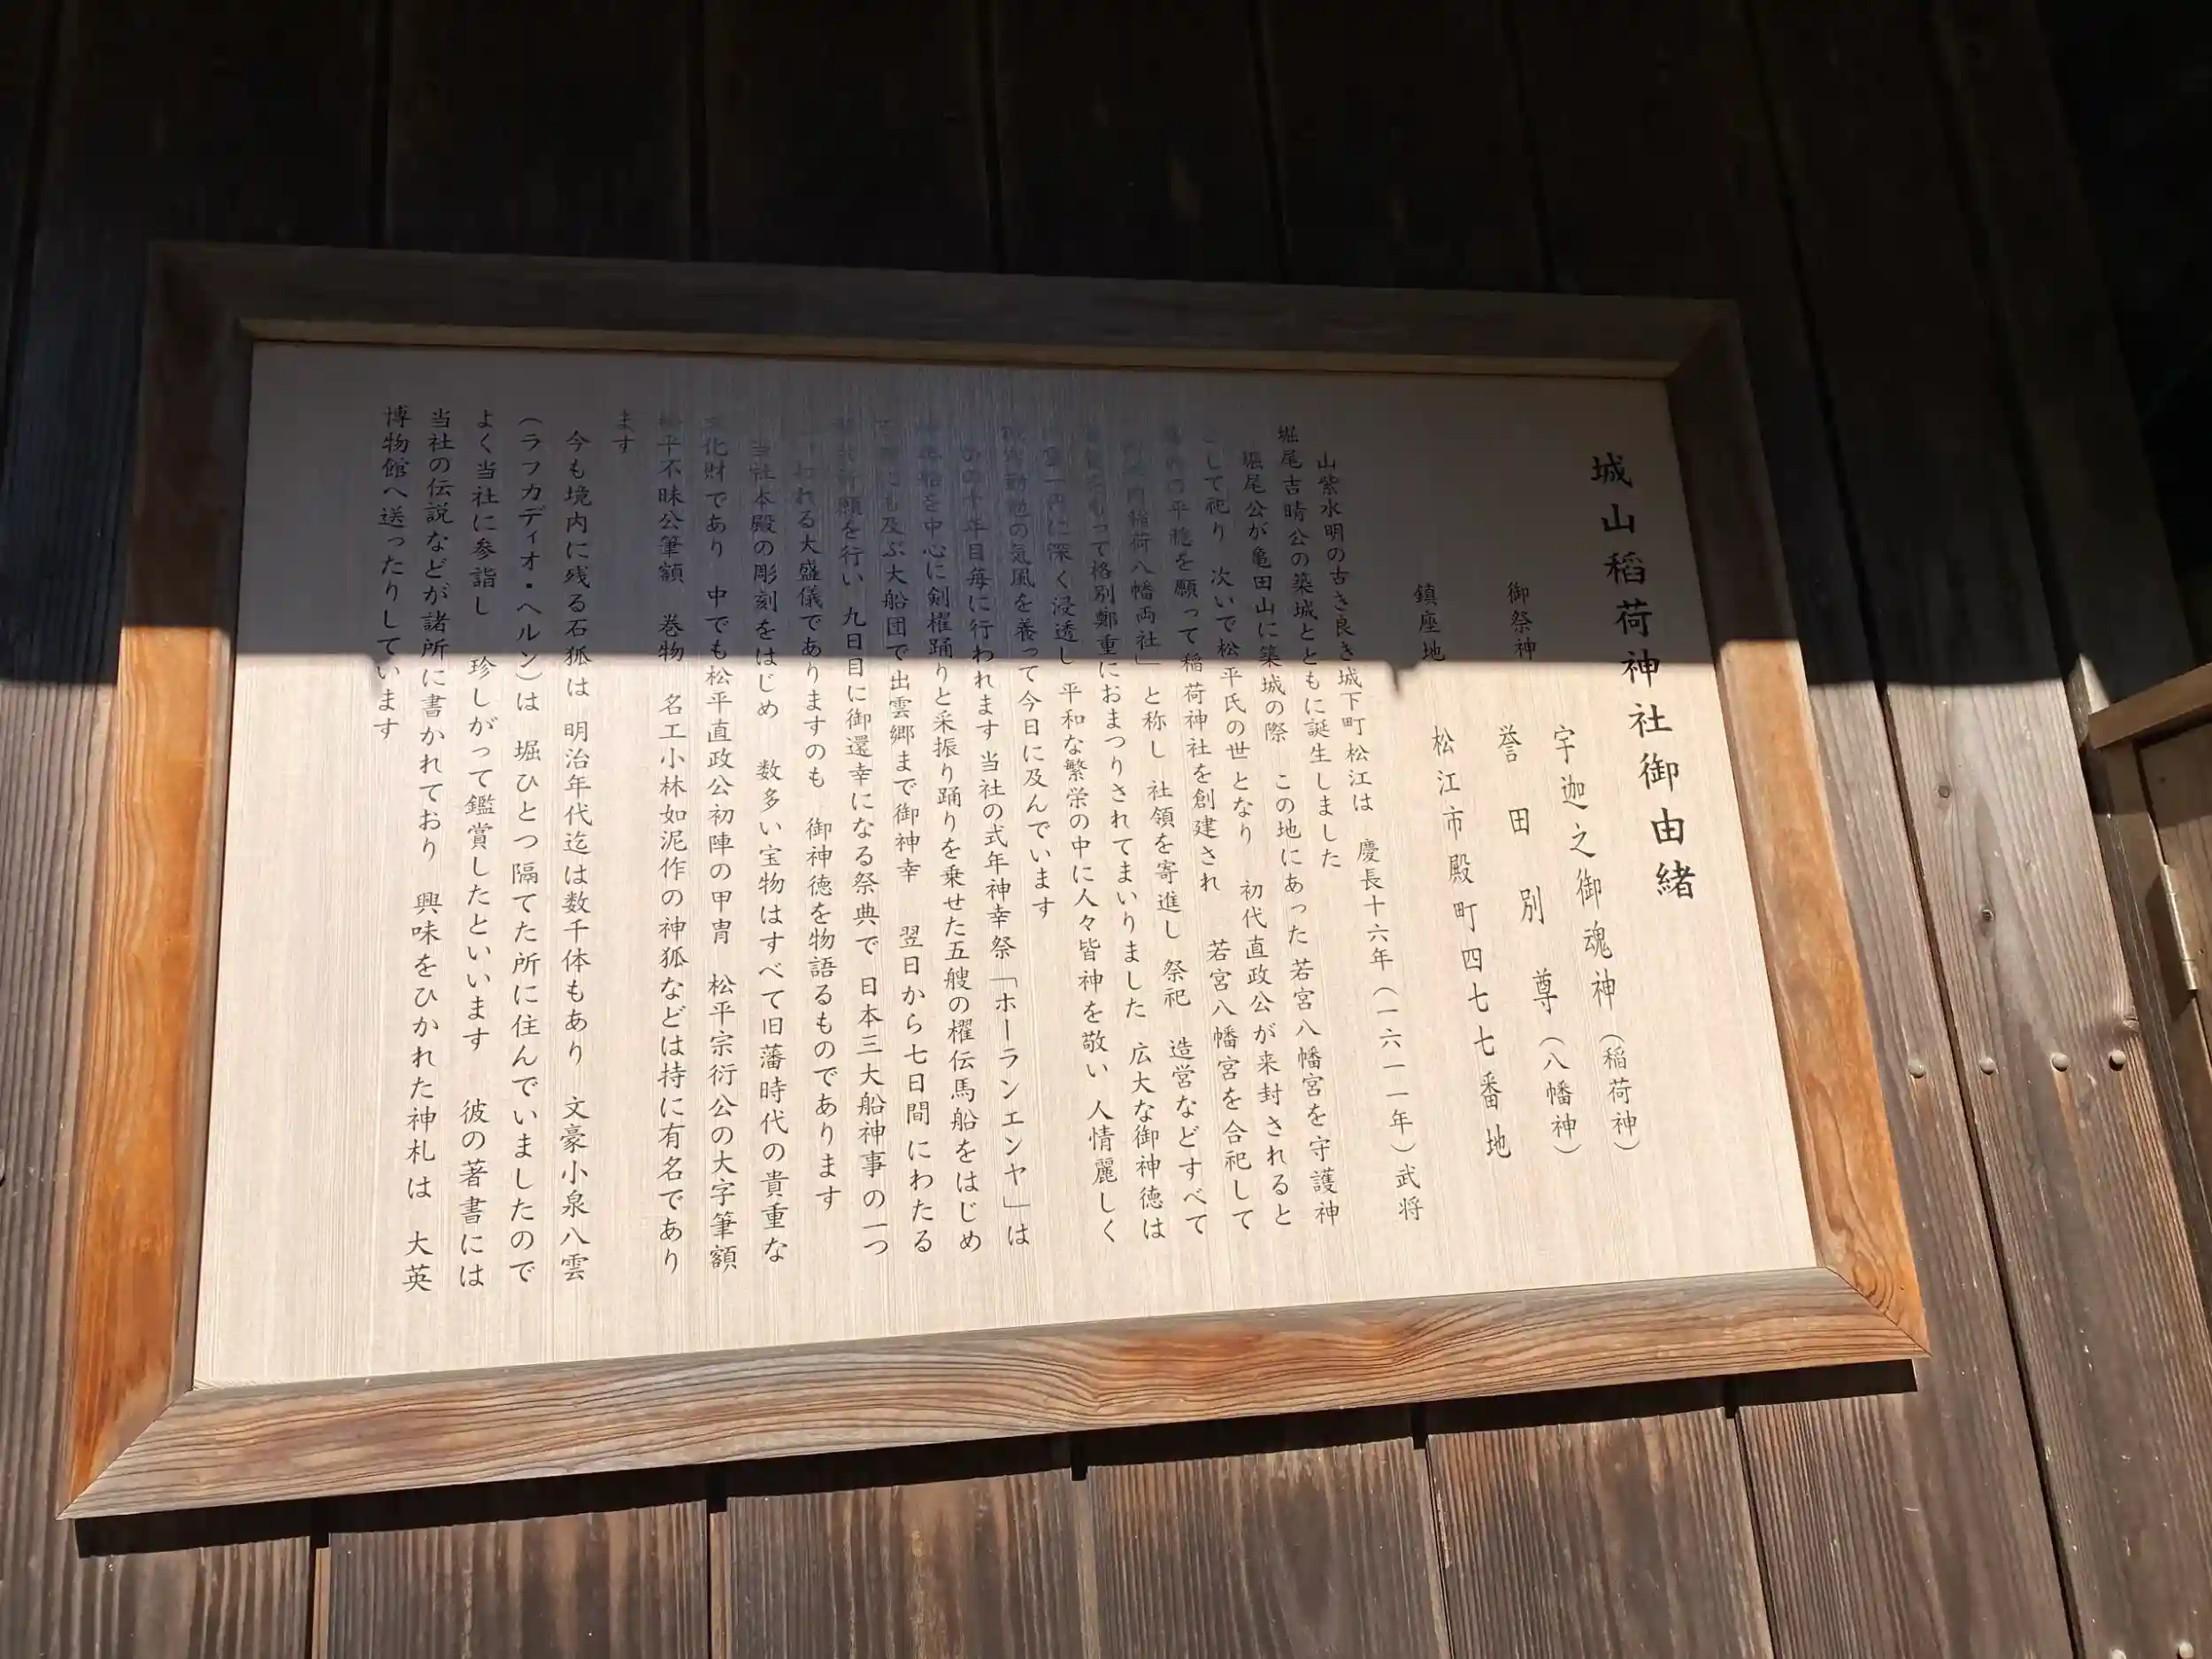 城山稲荷神社御由緒
御祭神 宇迦之御魂神（稲荷神）
誉田別尊（八幡神）
鎮座地 松江市殿町四七七番地
山紫水明の古き良き城下町松江は 慶長十六年（一六一一年）武将
堀尾吉晴公の築城とともに誕生しました
堀尾公が亀田山に築城の際 この地にあった若宮八幡宮を守護神
として祀り 次いで松平氏の世となり 初代直政公が来封されると
の平穏を願って稲荷神社を創建され 若宮八幡宮を合祀して
稲荷八幡両社」と称し 社領を寄進し 祭祀 造営などすべて
をもって格別鄭重におまつりされてまいりました 広大な御神徳は
に深く浸透し 平和な繁栄の中に人々皆神を敬い 人情麗しく
の気風を養って今日に及んでいます
十年目毎に行われます 当社の式年神幸祭「ホーランエンヤ」は
船を中心に剣櫂踊りと采振り踊りを乗せた五艘の櫂伝馬船をはじめ
にも及ぶ大船団で出雲郷まで御神幸 翌日から七日間にわたる
祈願を行い 九日目に御還幸になる祭典で 日本三大船神事の一つ
われる大盛儀でありますのも 御神徳を物語るものであります
当社本殿の彫刻をはじめ 数多い宝物はすべて旧藩時代の貴重な
文化財であり 中でも松平直政公初陣の甲冑 松平宗衍公の大字筆額
松平不昧公筆額 巻物 名工小林如泥作の神狐などは持に有名であり
ます
今も境内に残る石狐は 明治年代迄は数千体もあり 文豪小泉八雲
（ラフカディオ・ヘルン）は 堀ひとつ隔てた所に住んでいましたので
よく当社に参詣し 珍しがって鑑賞したといいます 彼の著書には
当社の伝説などが諸所に書かれており 興味をひかれた神札は 大英
博物館へ送ったりしています